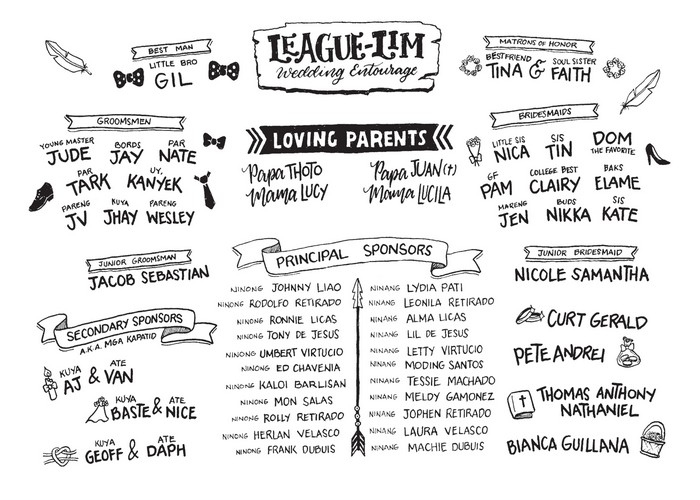 LEAGUE-LIM
Wedding Entourage
BEST MAN
LITTLE BRO
GIL
MATRONS OF HONOR
BESTFRIEND SOUL SISTER
TINA & FAITH
GROOMSMEN
YOUNG MASTER BORDS PAR
JUDE JAY NATE
PAR UY,
TARK KANYEK
PARENG KUYA PARENG
JV JHAY WESLEY
LOVING PARENTS
Papa THOTO Papa JUAN (†)
Mama LUCY Mama LUCILA
BRIDESMAIDS
LITTLE SIS SIS DOM
NICA TIN THE FAVORITE
GF COLLEGE BEST BAKS
PAM CLAIRY ELAME
MARENG BUDS SIS
JEN NIKKA KATE
JUNIOR GROOMSMAN
JACOB SEBASTIAN
SECONDARY SPONSORS
A.K.A. MGA KAPATID
KUYA ATE
AJ & VAN
KUYA ATE
BASTE & NICE
KUYA ATE
GEOFF & DAPH
PRINCIPAL SPONSORS
NINONG JOHNNY LIAO
NINONG RODOLFO RETIRADO
NINONG RONNIE LICAS
NINONG TONY DE JESUS
NINONG UMBERT VIRTUCIO
NINONG ED CHAVENIA
NINONG KALOI BARLISAN
NINONG MON SALAS
NINONG ROLLY RETIRADO
NINONG HERLAN VELASCO
NINONG FRANK DUBUIS
NINANG LYDIA PATI
NINANG LEONILA RETIRADO
NINANG ALMA LICAS
NINANG LIL DE JESUS
NINANG LETTY VIRTUCIO
NINANG MODING SANTOS
NINANG TESSIE MACHADO
NINANG MELDY GAMONEZ
NINANG JOPHEN RETIRADO
NINANG LAURA VELASCO
NINANG MACHIE DUBUIS
JUNIOR BRIDESMAID
NICOLE SAMANTHA
CURT GERALD
PETE ANDREI
THOMAS ANTHONY
NATHANIEL
BIANCA GUILLANA